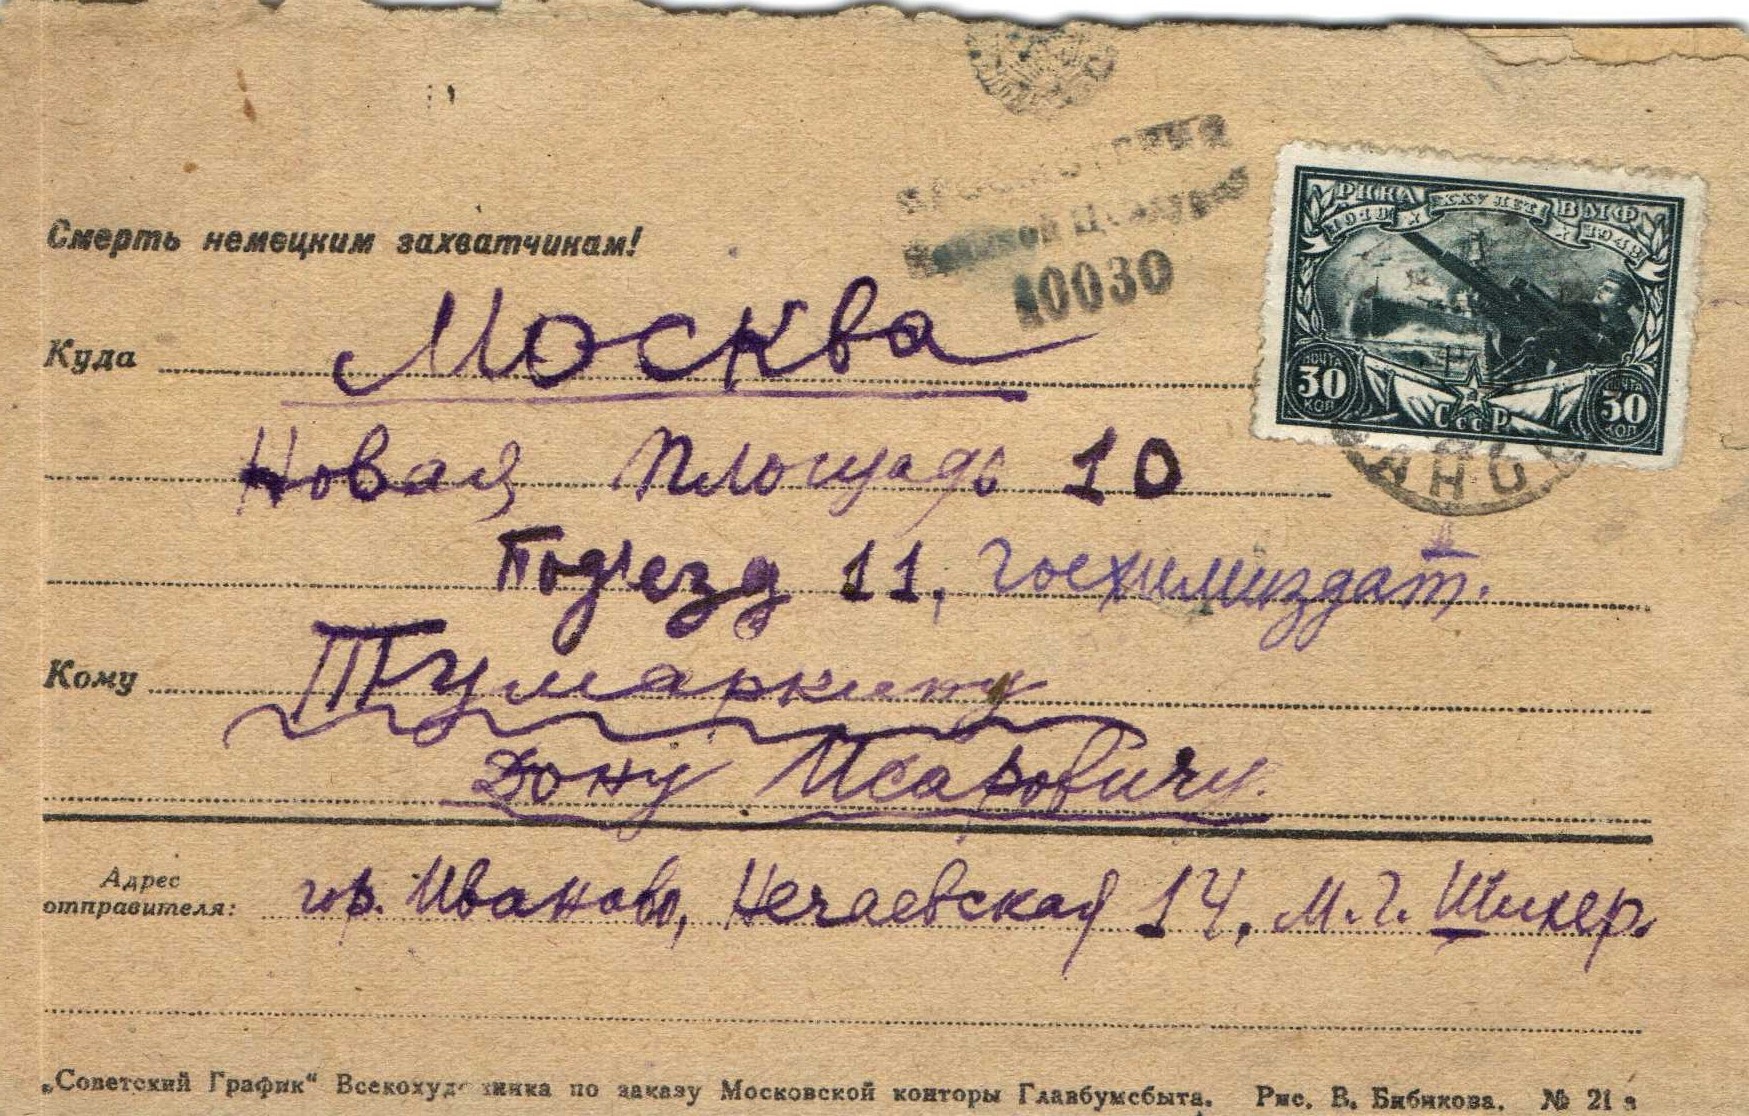 Просмотрено
Военной Цензурой
10030
РККА XXV ЛЕТ ВМФ
1918 X X 1943
ПОЧТА
30
КОП
ПОЧТА
30
КОП
СССР
Смерть немецким захватчикам!
Куда Москва
Новая площадь 10
Подъезд 11, Госхимиздат.
Кому Тумаркину
Дону Исаровичу.
Адрес
отправителя: гор. Иваново, Нечаевская 14, М. Г. Шихер.
„Советский График“ Всекохудожника по заказу Московской конторы Главбумсбыта. Рис. В. Бибикова. № 21